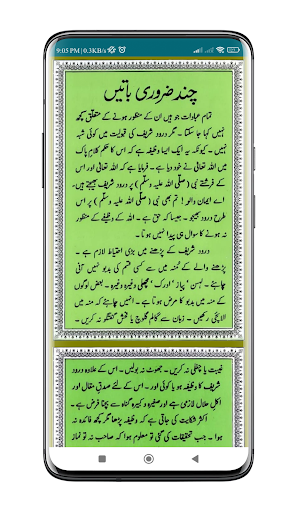 9:05 PM | 0.3KB/s
چند ضروری باتیں
تمام عبادات جو ہیں ان کے منظور ہونے کے متعلق کچھ
نہیں کہا جا سکتا ۔ مگر درود شریف کی قبولیت میں کوئی شبہ
نہیں ۔ کیونکہ یہ ایک ایسا وظیفہ ہے کہ اس کا حکم کلام پاک
میں اللہ تعالیٰ نے خود دیا ہے ۔ فرمایا ہے کہ اللہ تعالیٰ اور اس
کے فرشتے نبی (صلی اللہ علیہ وسلم) پر درود شریف بھیجتے ہیں۔
اے ایمان والو ! تم بھی نبی (صلی اللہ علیہ وسلم) پر اس
طرح درود بھیجو ۔ جیسا کہ حق ہے ۔ اللہ کے وظیفے کے منظور
نہ ہونے کا سوال ہی پیدا نہیں ہوتا ۔
درود شریف کے پڑھنے میں بڑی احتیاط لازم ہے ۔
پڑھنے والے کے منہ میں سے کسی قسم کی بدبو نہیں آنی
چاہئے ۔ لہسن ' پیاز ' ادرک ' مچھلی وغیرہ وغیرہ ۔ بعض لوگوں
کے منہ میں بدبو کا مرض ہوتا ہے ۔ انہیں چاہئے کہ منہ میں
الائچی رکھیں ۔ زبان سے گالم گلوچ یا فحش گفتگو نہ کریں ۔
غیبت یا چغلی نہ کریں ۔ جھوٹ نہ بولیں ۔ اس کے علاوہ درود
شریف کا وظیفہ ہو یا کوئی اور ۔ اس کے لئے صدق مقال اور
اکل حلال لازمی ہے اور صغیرہ و کبیرہ گناہ سے بچنا فرض ہے ۔
اکثر شکایت کی جاتی ہے کہ وظیفہ پڑھا مگر کچھ فائدہ نہ
ہوا ۔ جب تحقیقات کی گئی تو معلوم ہوا کہ صاحب نہ تو نماز